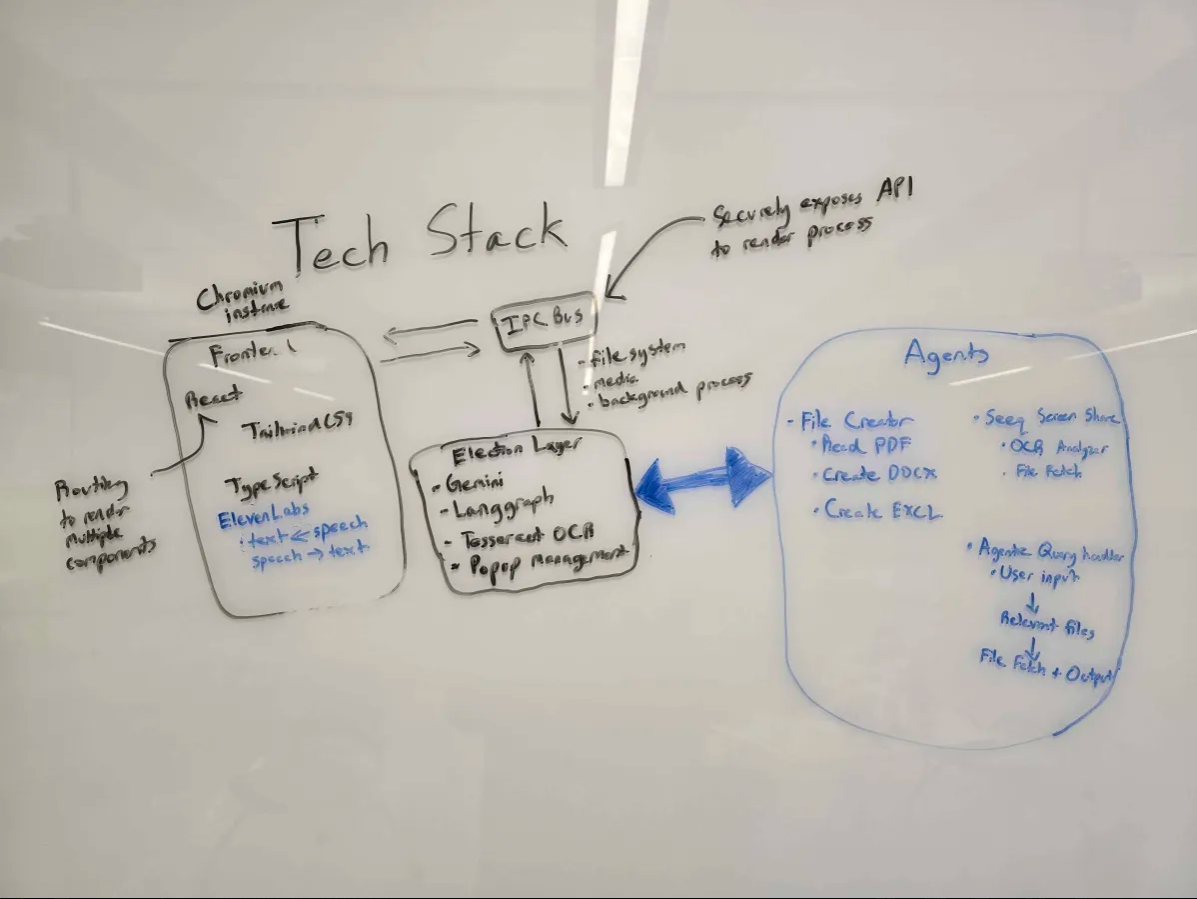 Tech Stack
Securely exposes API
to render process
Chromium
instance
IPC Bus
React
Tailwind CSS
TypeScript
ElevenLabs
text ← speech
speech → text
Routing
to render
multiple
components
- file system
- media
- background process
Election Layer
- Gemini
- Langgraph
- Tesseract OCR
- Popup Management
Agents
- File Creator
• Read PDF
• Create DOCX
• Create EXCL
• Seeq Screen Share
• OCR Analyzer
• File Fetch
• Agentic Query handler
• User input
↓
Relevant files
↓
File Fetch + Output